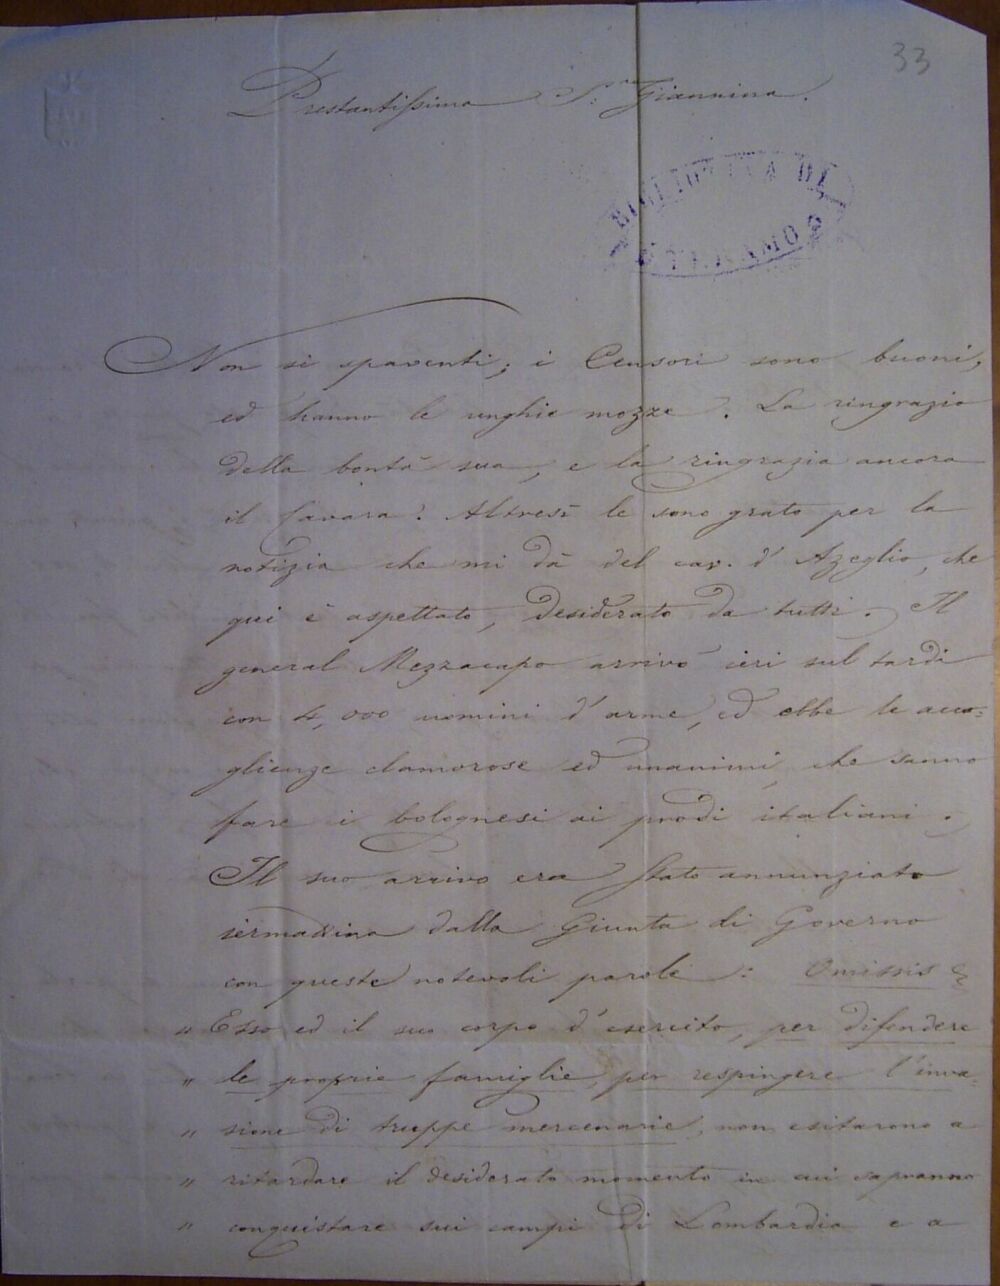 33
Prestantissima S.ra Giannina.
BIBLIOTECA DI
TERAMO
Non si spaventi; i Censori sono buoni,
ed hanno le unghie mozze. La ringrazio
della bontà sua, e la ringrazia ancora
il Cavara. Altresì le sono grato per la
notizia che mi dà del cav. d'Azeglio, che
qui è aspettato, desiderato da tutti. Il
general Mezzacapo arrivò ieri sul tardi
con 4,000 uomini d'arme, ed ebbe le acco-
glienze clamorose ed unanimi, che sanno
fare i bolognesi ai prodi italiani.
Il suo arrivo era stato annunziato
iermattina dalla Giunta di Governo
con queste notevoli parole: Omissis
„ Esso ed il suo corpo d'esercito, per difendere
„ le proprie famiglie, per respingere l'inva-
„ sione di truppe mercenarie, non esitarono a
„ ritardare il desiderato momento in cui sapranno
„ conquistare sui campi di Lombardia e a